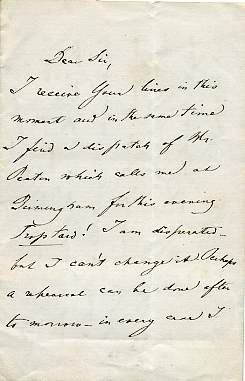 Dear Sir,
I receive Your lines in this
moment and in the same time
I find a dispatch of Mr.
which calls me at
for this evening
Trop tard! I am disperated –
but I can't change it. Perhaps
a rehearsal can be done after
to morrow – in every case I